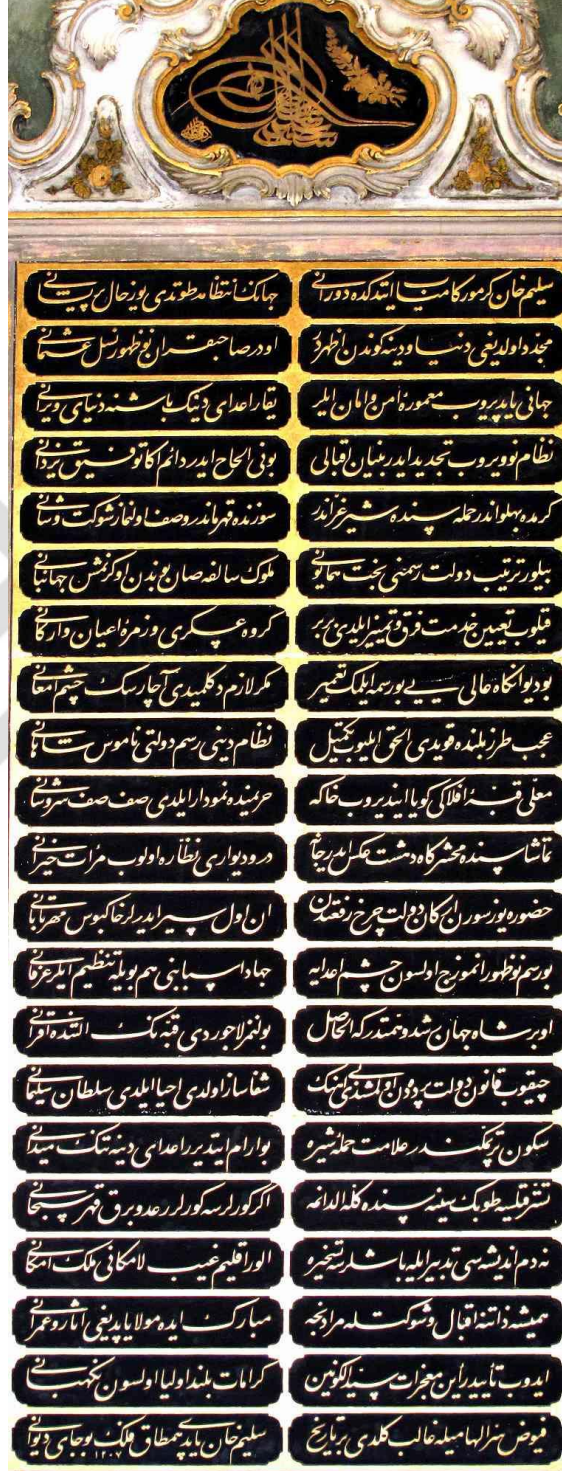 سليم خان كرمور كاميا ايتدكده دورانى جهانك انتظامه طوتدى يوز حال پريشانى
مجدد اولديغى دنيا و دينه كوندن اظهردر اودر صاحبقران نوظهور نسل عثمانى
جهانى ياپديروب معمورهٔ امن و امان ايلر بقار اعداى دينك باشنه دنياى ويرانى
نظام نو ويروب تجديد ايدر بنيان اقبالى بونى الحاح ايدر دائم اكا توفيق يزدانى
كرمده پهلواندر حمله سنده شير غراندر سوزنده قهرماندر وصف اولنماز شوكت و شانى
بيلور ترتيب دولت رسمنى بخت همايونى ملوك سالفه صان بوندن اوكرنمش جهانبانى
قيلوب تعيين خدمت فرق و تمييز ايلدى بربر كروه عسكرى و زمرهٔ اعيان و اركانى
بو ديوانكاه عالى يى بو رسمه ايلمك تعمير مكر لازم دكلميدى آچار سك چشم امعانى
عجب طرز بلنده قويدى الحق ايليوب تكميل نظام دينى رسم دولتى ناموس شاهانى
معلى قبهٔ افلاكى كويا اينديروب خاكه حريمنده نمودار ايلدى صف صف سروشانى
تماشاسنده محشركاه دهشت عكس ايدر جانه در و ديوارى نظاره اولوب مرآت حيرانى
حضوره يوز سورن اركان دولت چرخ رفعتدن ان اول سير ايدرلر خاكبوس مهر تابانى
بو رسم نوظهور انموزج اولسون چشم اعدايه جهاد اسبابنى هم بويله تنظيم ايلر عرفانى
او بر شاه جهان رشد و همتدر كه الحاصل بولنمز لاجوردى قبه نك التنده اقرانى
چيقوب قانون دولت پرده دن اولمشدى انك شفاساز اولدى احيا ايلدى سلطان سليمانى
سكون و تمكيندر علامت حملهٔ شيره بو ارام ايتديرر اعداى دينه تنك ميدانى
سينه سنده كلهٔ الدانمه اكر كورلرسه كورلر رعد و برق قهر سبحانى
نه دم انديشه سى تدبير ايله باشلر تسخيره الور اقليم غيب لامكانى ملك امكانى
هميشه ذاتنه اقبال و شوكتله مبارك ايده مولا ياپديغى آثار و عمرانى
ايدوب تأييد رأين معجزات سيد الكونين كرامات بلند اوليا اولسون نكهبانى
فيوض الهاميله غالب كلدى بر تاريخ سليم خان ياپدى چمطاق فلك بوجاى ديوانى
١٢٠٧